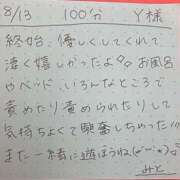 8/13 100分 Y様
終始、優しくしてくれて、
凄く嬉しかったよ。お風呂
やベッド、いろんなところで
責めたり責められたりして
気持ちよくて興奮しちゃった!!!
また一緒に遊ぼうね
みと